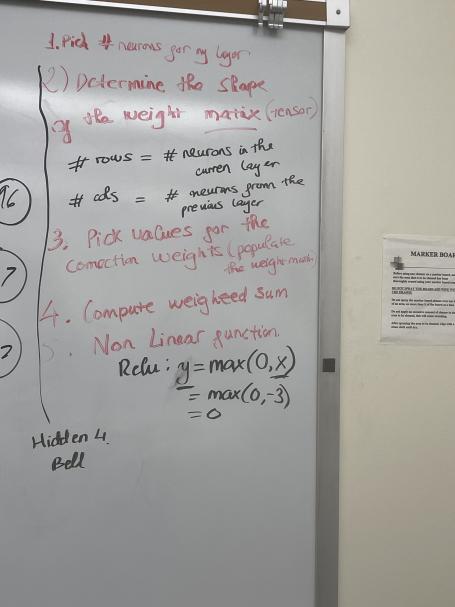 1. Pick # neurons for my layer
2) Determine the shape
of the weight matrix (tensor)
# rows = # neurons in the
curren layer
# cols = # neurons from the
previous layer
3. Pick values for the
connection weights (populate
the weight matrix
4. Compute weigheed sum
Non Linear function.
Relu: y = max(0,x)
= max(0,-3)
= 0
Hidden 4.
Bell
96
7
2
MARKER BOAR